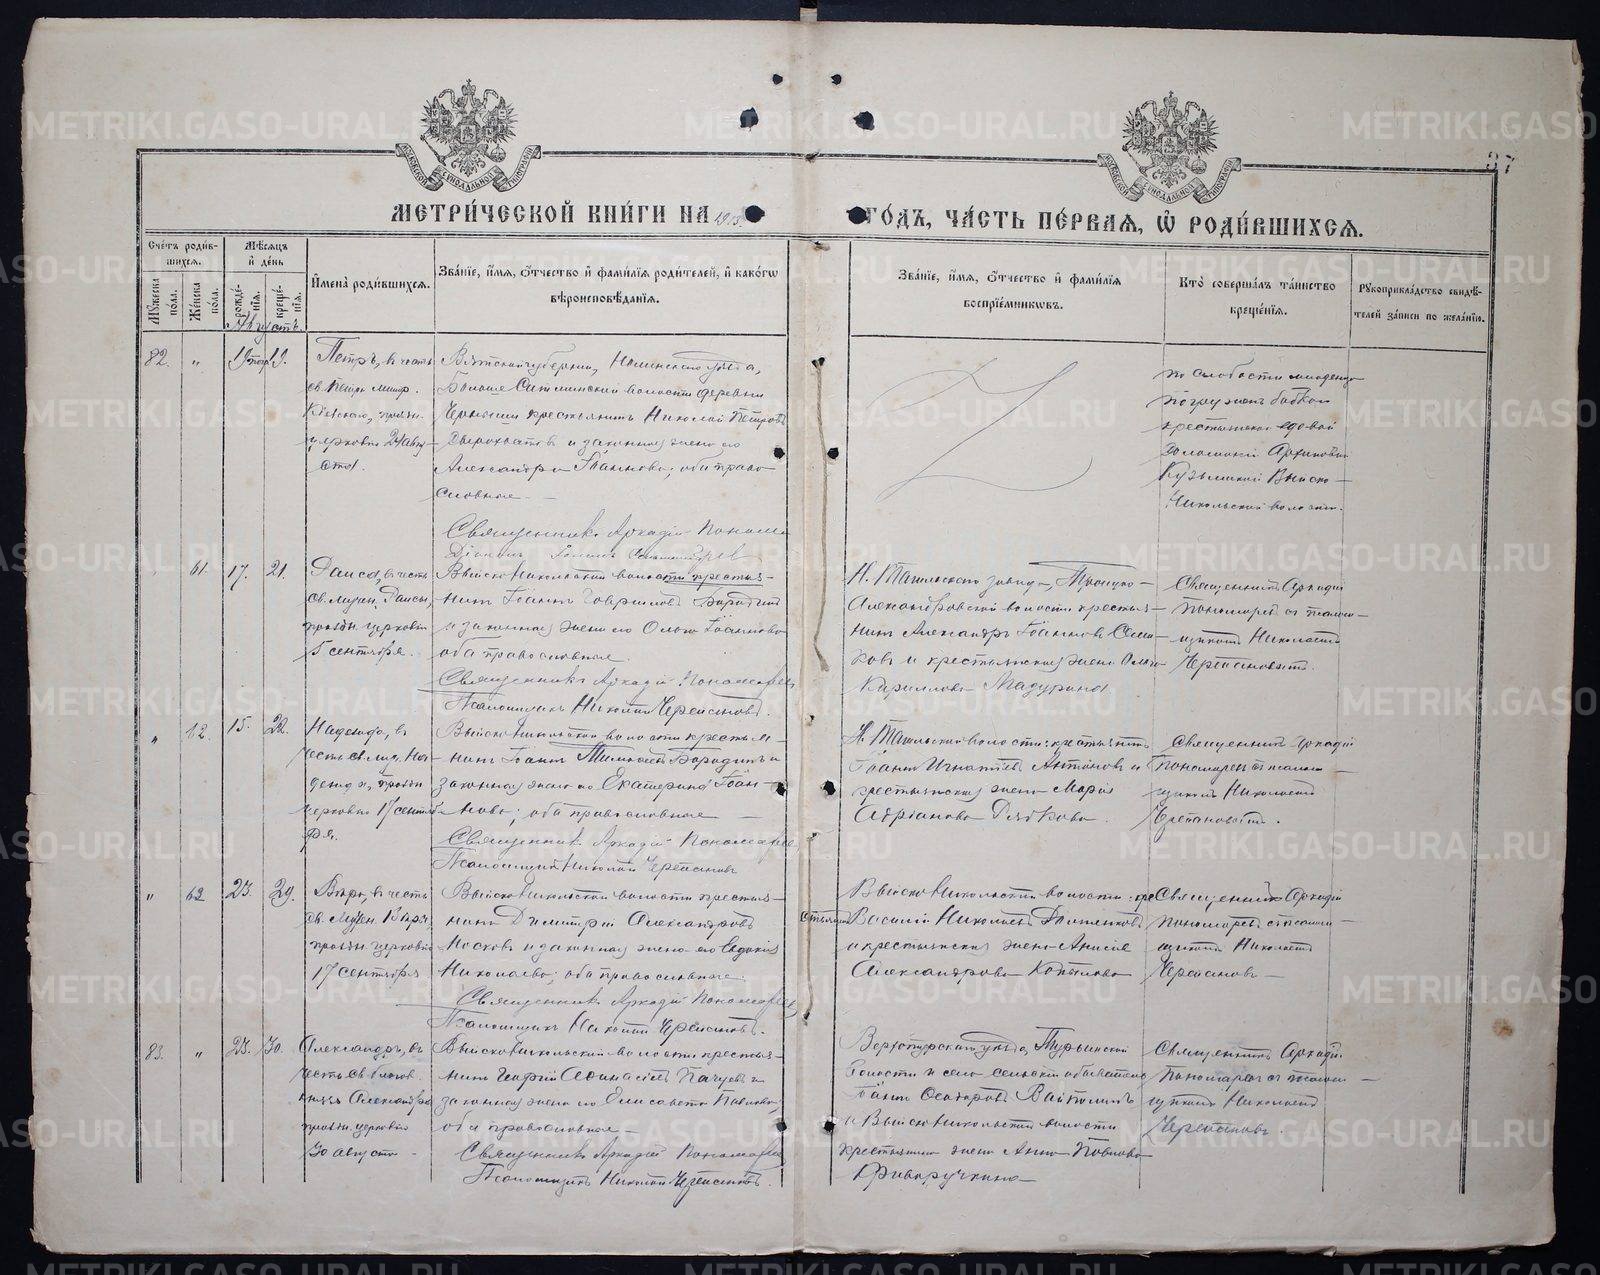 37
МЕТРИЧЕСКОЙ КНИГИ НА 1913
ГОДЪ, ЧАСТЬ ПЕРВАЯ, Ѡ РОДИВШИХСЯ.
Счетъ родив-
шихся.
Мужеска пола.
Женска пола.
Мѣсяцъ
и день
рожде-
нія.
креще-
нія.
Имена родившихся.
Званіе, имя, отчество и фамилія родителей, и какогѡ
вѣроисповѣданія.
Званіе, имя, отчество и фамилія
воспріемникѡвъ.
Кто совершалъ таинство
крещенія.
Рукоприкладство свидѣ-
телей записи по желанію.
Августъ.
82. " 19. 19.
Петръ, въ честь
св. Петра митр.
Кіевскаго, празн.
церковію 24 авгу-
ста.
Вятской губерніи, Нолинскаго уѣзда,
волости деревни
крестьянинъ Николай Петровъ
и законная жена его
Александра Іоаннова; оба право-
славные.
по слабости младенца
погруженъ бабкой
крестьянской вдовой
Кузьминой Выйско-
Никольской волости.
Священникъ Аркадій Пономаревъ
Діаконъ
61. 17. 21.
Раиса, въ честь
св. мучен. Раисы,
празн. церковію
5 сентября.
Выйско Никольской волости крестья-
нинъ Іоаннъ Гавріиловъ Бородинъ
и законная жена его Ольга Іоаннова
оба православные.
Н. Тагильскаго завода, Троицко-
Александровской волости крестья-
нинъ Александръ Іоанновъ
и крестьянская жена Ольга
Кириллова Мадурина
Священникъ Аркадій
Пономаревъ съ псалом-
щикомъ Николаемъ
Черепановымъ.
Священникъ Аркадій Пономаревъ
Псаломщикъ Николай Черепановъ.
" 62. 15. 22.
Надежда, въ
честь св. муч. На-
дежды, празн.
церковію 17 сентяб-
ря.
Выйско Никольской волости крестья-
нинъ Іоаннъ Бородинъ и
законная жена его Екатерина Іоан-
нова; оба православные
Н. Тагильской волости: крестьянинъ
Іоаннъ Игнатіевъ Антоновъ и
крестьянская жена Марія
Адріанова
Священникъ Аркадій
Пономаревъ съ псалом-
щикомъ Николаемъ
Черепановымъ.
Священникъ Аркадій Пономаревъ
Псаломщикъ Николай Черепановъ
" 63 23. 29.
Вѣра, въ честь
св. Мучен. Вѣры,
празн. церковію
17 сентября
Выйско Никольской волости крестья-
нинъ Димитрій Александровъ
Носковъ и законная жена его Евдокія
Николаева; оба православные.
Выйско Никольской волости: кре-
стьянинъ Василій Николаевъ
и крестьянская жена Анисія
Александрова Копылова
Священникъ Аркадій
Пономаревъ съ псалом-
щикомъ Николаемъ
Черепановъ
Священникъ Аркадій Пономаревъ
Псаломщикъ Николай Черепановъ.
83. " 23. 30.
Александръ, въ
честь св. благов.
князя Александра
празн. церковію
30 августа
Выйско Никольской волости крестья-
нинъ Георгій Афанасіевъ Пачуевъ и
законная жена его Елисавета Павлова
оба православные
Верхотурскаго уѣзда, Турьинской
волости и села сельскій обыватель
Іоаннъ
и Выйско Никольской волости
крестьянская жена Анна Павлова
Криворучкина
Священникъ Аркадій
Пономаревъ съ псалом-
щикомъ Николаемъ
Черепановъ.
Священникъ Аркадій Пономаревъ
Псаломщикъ Николай Черепановъ.
METRIKI.GASO-URAL.RU